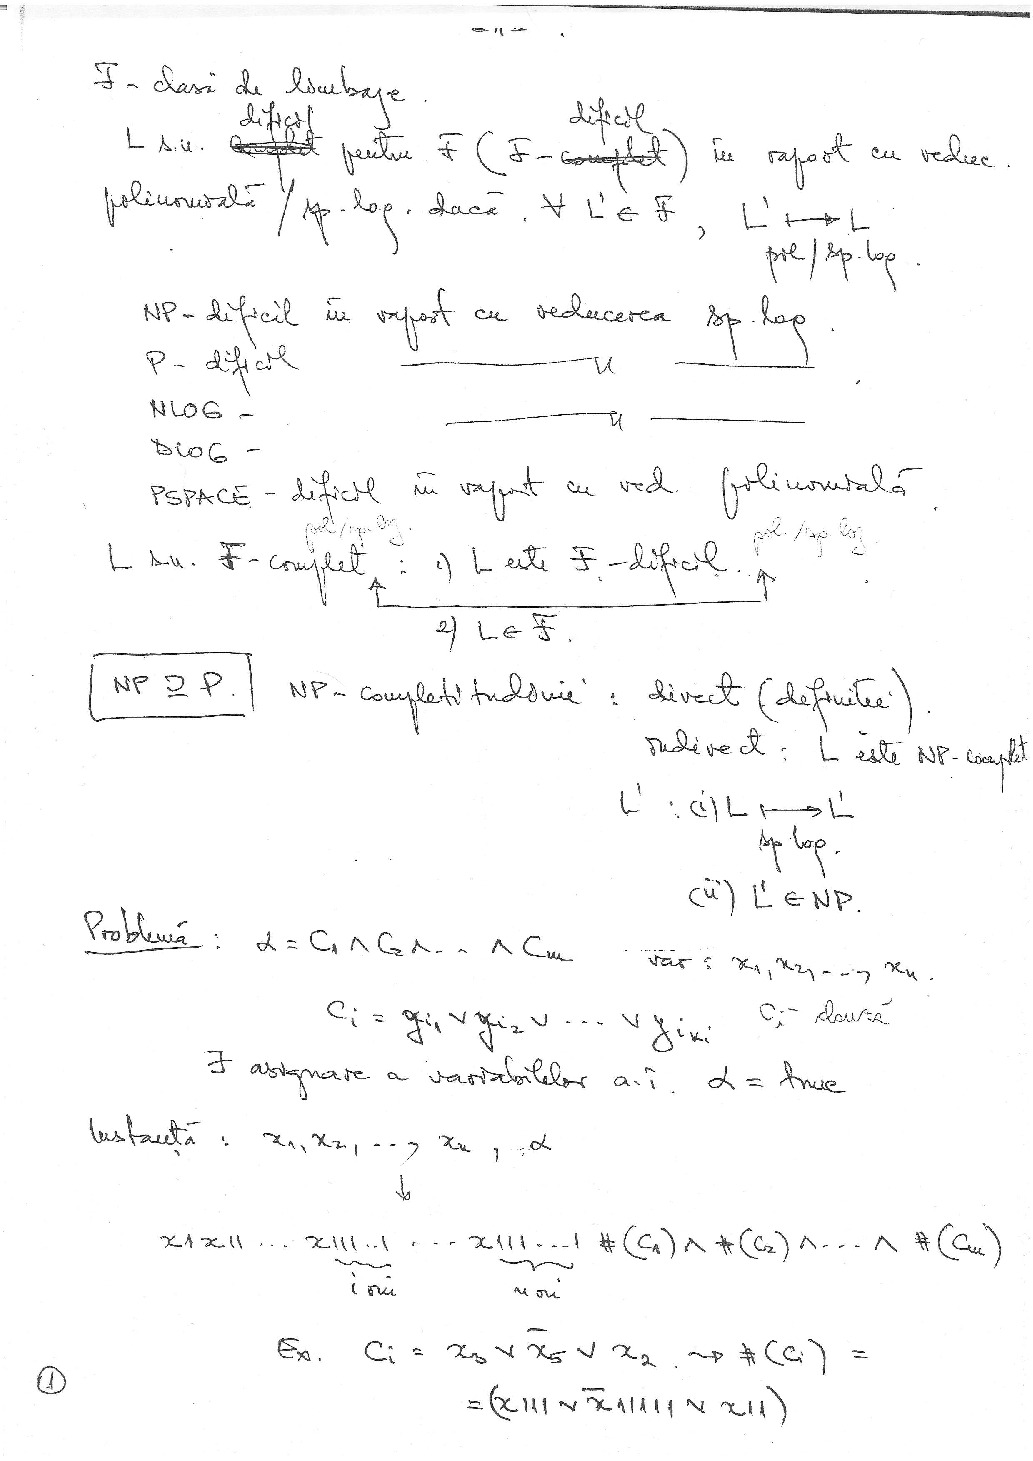 — 11 —
F - clasă de limbaje.
L s.n. dificil pentru F (F-dificil) în raport cu reduc.
polinomială / sp. log. dacă ∀ L' ∈ F, L' ↦ L
pol / sp. log.
NP-dificil în raport cu reducerea sp. log.
P - dificil —— 〃 ——
NLOG - —— 〃 ——
DLOG -
PSPACE - dificil în raport cu red. polinomială.
pol/sp. log. pol./sp log
L s.n. F-complet : 1) L este F-dificil.
2) L ∈ F.
NP ⊇ P. NP-completitudinie : direct (definiție).
indirect : L este NP-complet
L' : (i) L ↦ L'
sp log.
(ii) L' ∈ NP.
Problemă : α = C1 ∧ C2 ∧ ... ∧ Cm var : x1, x2, ..., xn.
Ci = yi1 ∨ yi2 ∨ ... ∨ yiki Ci - clauză
∃ asignare a variabilelor a.î. α = true
Instanță : x1, x2, ..., xn , α
↓
x1x11 ... x111..1 ... x111...1 #(C1) ∧ #(C2) ∧ ... ∧ #(Cm)
i ori n ori
Ex. Ci = x3 ∨ x̄5 ∨ x2 ⇝ #(Ci) =
= (x111 ∨ x̄11111 ∨ x11)
1